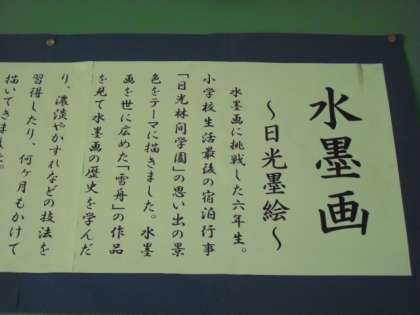 水墨画
～日光墨絵～
水墨画に挑戦した六年生。
小学校生活最後の宿泊行事
「日光林間学園」の思い出の景
色をテーマに描きました。水墨
画を世に広めた「雪舟」の作品
を見て水墨画の歴史を学んだ
り、濃淡やかすれなどの技法を
習得したり、何ヶ月もかけて
描いてきました。